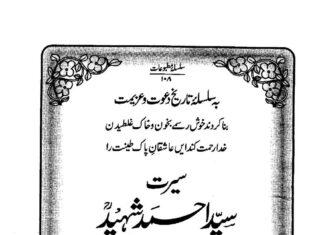 سلسلۂ مطبوعات
۱۰۸
بہ سلسلۂ تاریخ دعوت و عزیمت
بنا کردند خوش رسمے بخون و خاک غلطیدن
خدا رحمت کند ایں عاشقانِ پاک طینت را
سیرت
سید احمد شہیدؒ